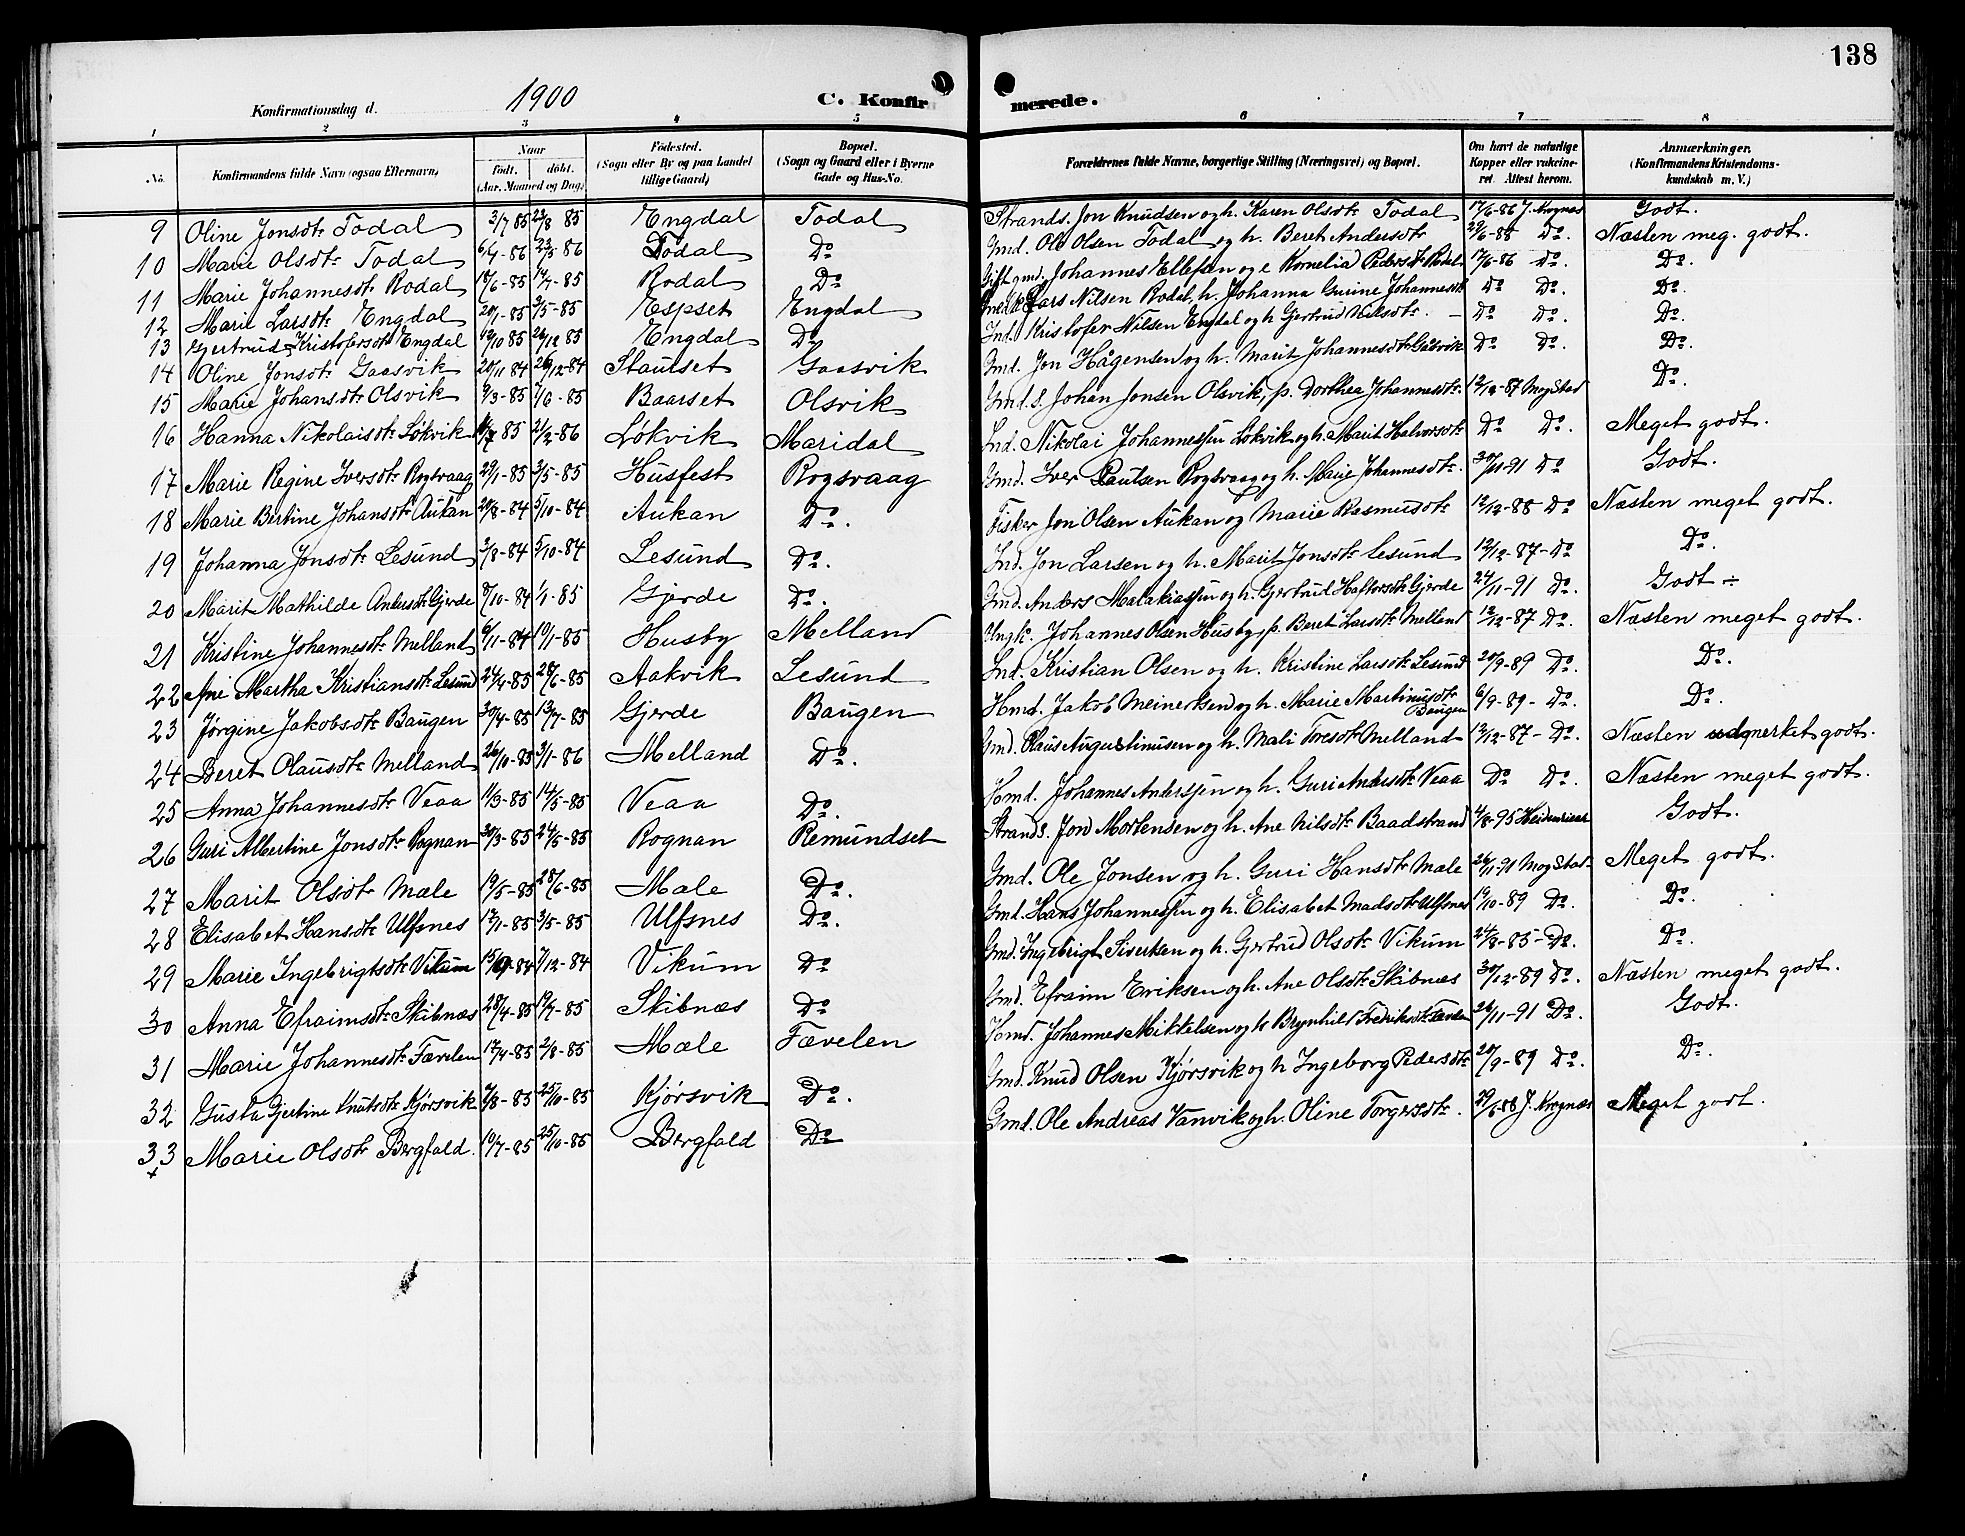 138
Konfirmationsdag d. 1900 C. Konfirmerede.
1 2 3 4 5 6 7 8
No. Konfirmandens fulde Navn (ogsaa Efternavn). Naar født. døbt. (Aar, Maaned og Dag.) Fødested. (Sogn eller By og paa Landet tillige Gaard) Bopæl. (Sogn og Gaard eller i Byerne Gade og Hus-No. Forældrenes fulde Navne, borgerlige Stilling (Næringsvei) og Bopæl. Om havt de naturlige Kopper eller vakcineret. Attest herom. Anmærkninger. (Konfirmandens Kristendomskundskab m. V.)
9 Oline Jonsdtr Todal 3/7 85 23/8 85 Engdal Todal Strands. Jon Knudsen og h. Karen Olsdtr Todal 17/6-86 J. Krognæs Godt.
10 Marie Olsdtr Todal 6/4-86 23/5-86 Todal Do Gmd. Ole Olsen Todal og h. Beret Andersdtr 29/6-88 Do. Næsten meg. godt.
11 Marie Johannesdtr Rodal 17/6-85 19/7-85 Rodal Do Gift gmd. Johannes Ellefsen og e Kornelia Pedersdtr Rodal 17/6-86 Do. Do.
12 Marie Larsdtr Engdal 20/1-85 3/5-85 Espset Engdal Lars Nilsen Rodal, h. Johanna Gurine Johannesdtr Do Do. Do.
13 Gertrud Kristofersdtr Engdal 19/10 85 26/12 85 Engdal Do Ind. Kristofer Nilsen Engdal og h Gjertrud Nilsdtr. — Do Do. Do.
14 Oline Jonsdtr Gaasvik 20/11 84 26/12-84 Stautset Gaasvik Gmd. Jon Hågensen og h. Marit Johannesdtr Gåsvik Do Do. Do.
15 Marie Johansdtr Olsvik 9/3-85 7/6-85 Baarset Olsvik Gmd. s. Johan Jonsen Olsvik, p. Dorthea Johannesdtr. 12/12-87 Mogstad Do.
16 Hanna Nikolaisdtr Løkvik 85 21/2-86 Løkvik Maridal Ind. Nikolai Johannessen Løkvik og h. Marit Halvorsdtr Do Do. Meget godt.
17 Marie Regine Iversdtr Rogsvaag 29/1-85 3/5-85 Husfest Rogsvaag Gmd. Iver Paulsen Rogsvaag og h. Marie Johannesdtr. 30/11-91 Do Godt.
18 Marie Birtine Johansdtr Aukan 20/8-84 5/10-84 Aukan Do. Fisker Jon Olsen Aukan og Marie Rasmusdtr 12/12-88 Do Næsten meget godt.
19 Johanna Jonsdtr Lesund 3/8-84 5/10-84 Lesund Do. Ind. Jon Larsen og h. Marit Jonsdtr Lesund 12/12-87-Do Do.
20 Marit Mathilde Andersdtr Gjerde 8/10-84 1/1-85 Gjerde Do. Gmd. Anders Malakiassen og h. Gjertrud Halvorsdtr Gjerde 24/11-91 Do. Godt ÷
21 Kristine Johannesdtr Melland 6/11-84 19/1-85 Husby Melland Ungk. Johannes Olsen Husby, p. Beret Larsdtr Melland 12/12-87 Do. Næsten meget godt.
22 Ane Martha Kristiansdtr Lesund 24/4-85 28/6-85 Aakvik Lesund Ind. Kristian Olsen og h. Kristine Larsdtr Lesund 20/9-89 Do. Do.
23 Jørgine Jakobsdtr Baugen 30/4-85 13/7-85 Gjerde Baugen Hmd. Jakob Meinertsen og h. Marie Martinusdtr Baugen 6/9-89-Do. Do.
24 Beret Olausdtr Melland 26/10-85 3/1-86 Melland Do. Gmd. Olaus Augustinusen og h. Mali Toresdtr Melland 12/12-87-Do. Næsten udmerket godt.
25 Anna Johannesdtr Veaa 11/3-85 14/5-85 Veaa Do. Hmd. Johannes Anderssen og h. Guri Andersdtr Veaa Do Do. Næsten meget godt.
26 Guri Albertine Jonsdtr Rognan 30/3-85 24/5-85 Rognan Remundset Strands. Jon Mortensen og h. Ane Nilsdtr Baadstrand 4/8-95 Godt.
27 Marit Olsdtr Mæle 19/5-85 28/6-85 Mæle Do. Gmd. Ole Jonsen og h. Guri Hansdtr Mæle 26/11-91 Mogstad Meget godt.
28 Elisabet Hansdtr Ulfsnes 17/1-85 3/5-85 Ulfsnes Do. Gmd. Hans Johannessen og h. Elisabet Madsdtr Ulfsnes 19/10-89 Do. Do.
29 Marie Ingebrigtsdtr Vikum 15/9-84 7/12-84 Vikum Do Gmd. Ingebrigt Sivertsen og h. Gjertrud Olsdtr Vikum 24/8-85-Do. Do.
30 Anna Efraimsdtr Skibnæs 28/4-85 19/7-85 Skibnæs Do Gmd. Efraim Eriksen og h. Ane Olsdtr Skibnæs 30/12-89 Do. Næsten meget godt.
31 Marie Johannesdtr Tævelen 17/4-85 2/8-85 Mæle Tævelen Hmd. Johannes Mikkelsen og h Brynhild Fredriksdtr Tævelen 26/11-91 Do. Godt.
32 Gusta Gjertine Knutsdtr Kjørsvik 2/8-85 25/10-85 Kjørsvik Do. Gmd. Knud Olsen Kjørsvik og h Ingeborg Pedersdtr 20/9-89 Do. Do.
33 Marie Olsdtr Bergfald. 19/7-85 25/10-85 Bergfald Do Gmd. Ole Andreas Vanvik og h. Oline Torgersdtr. 29/6-88 J. Krognæs Meget godt.
+